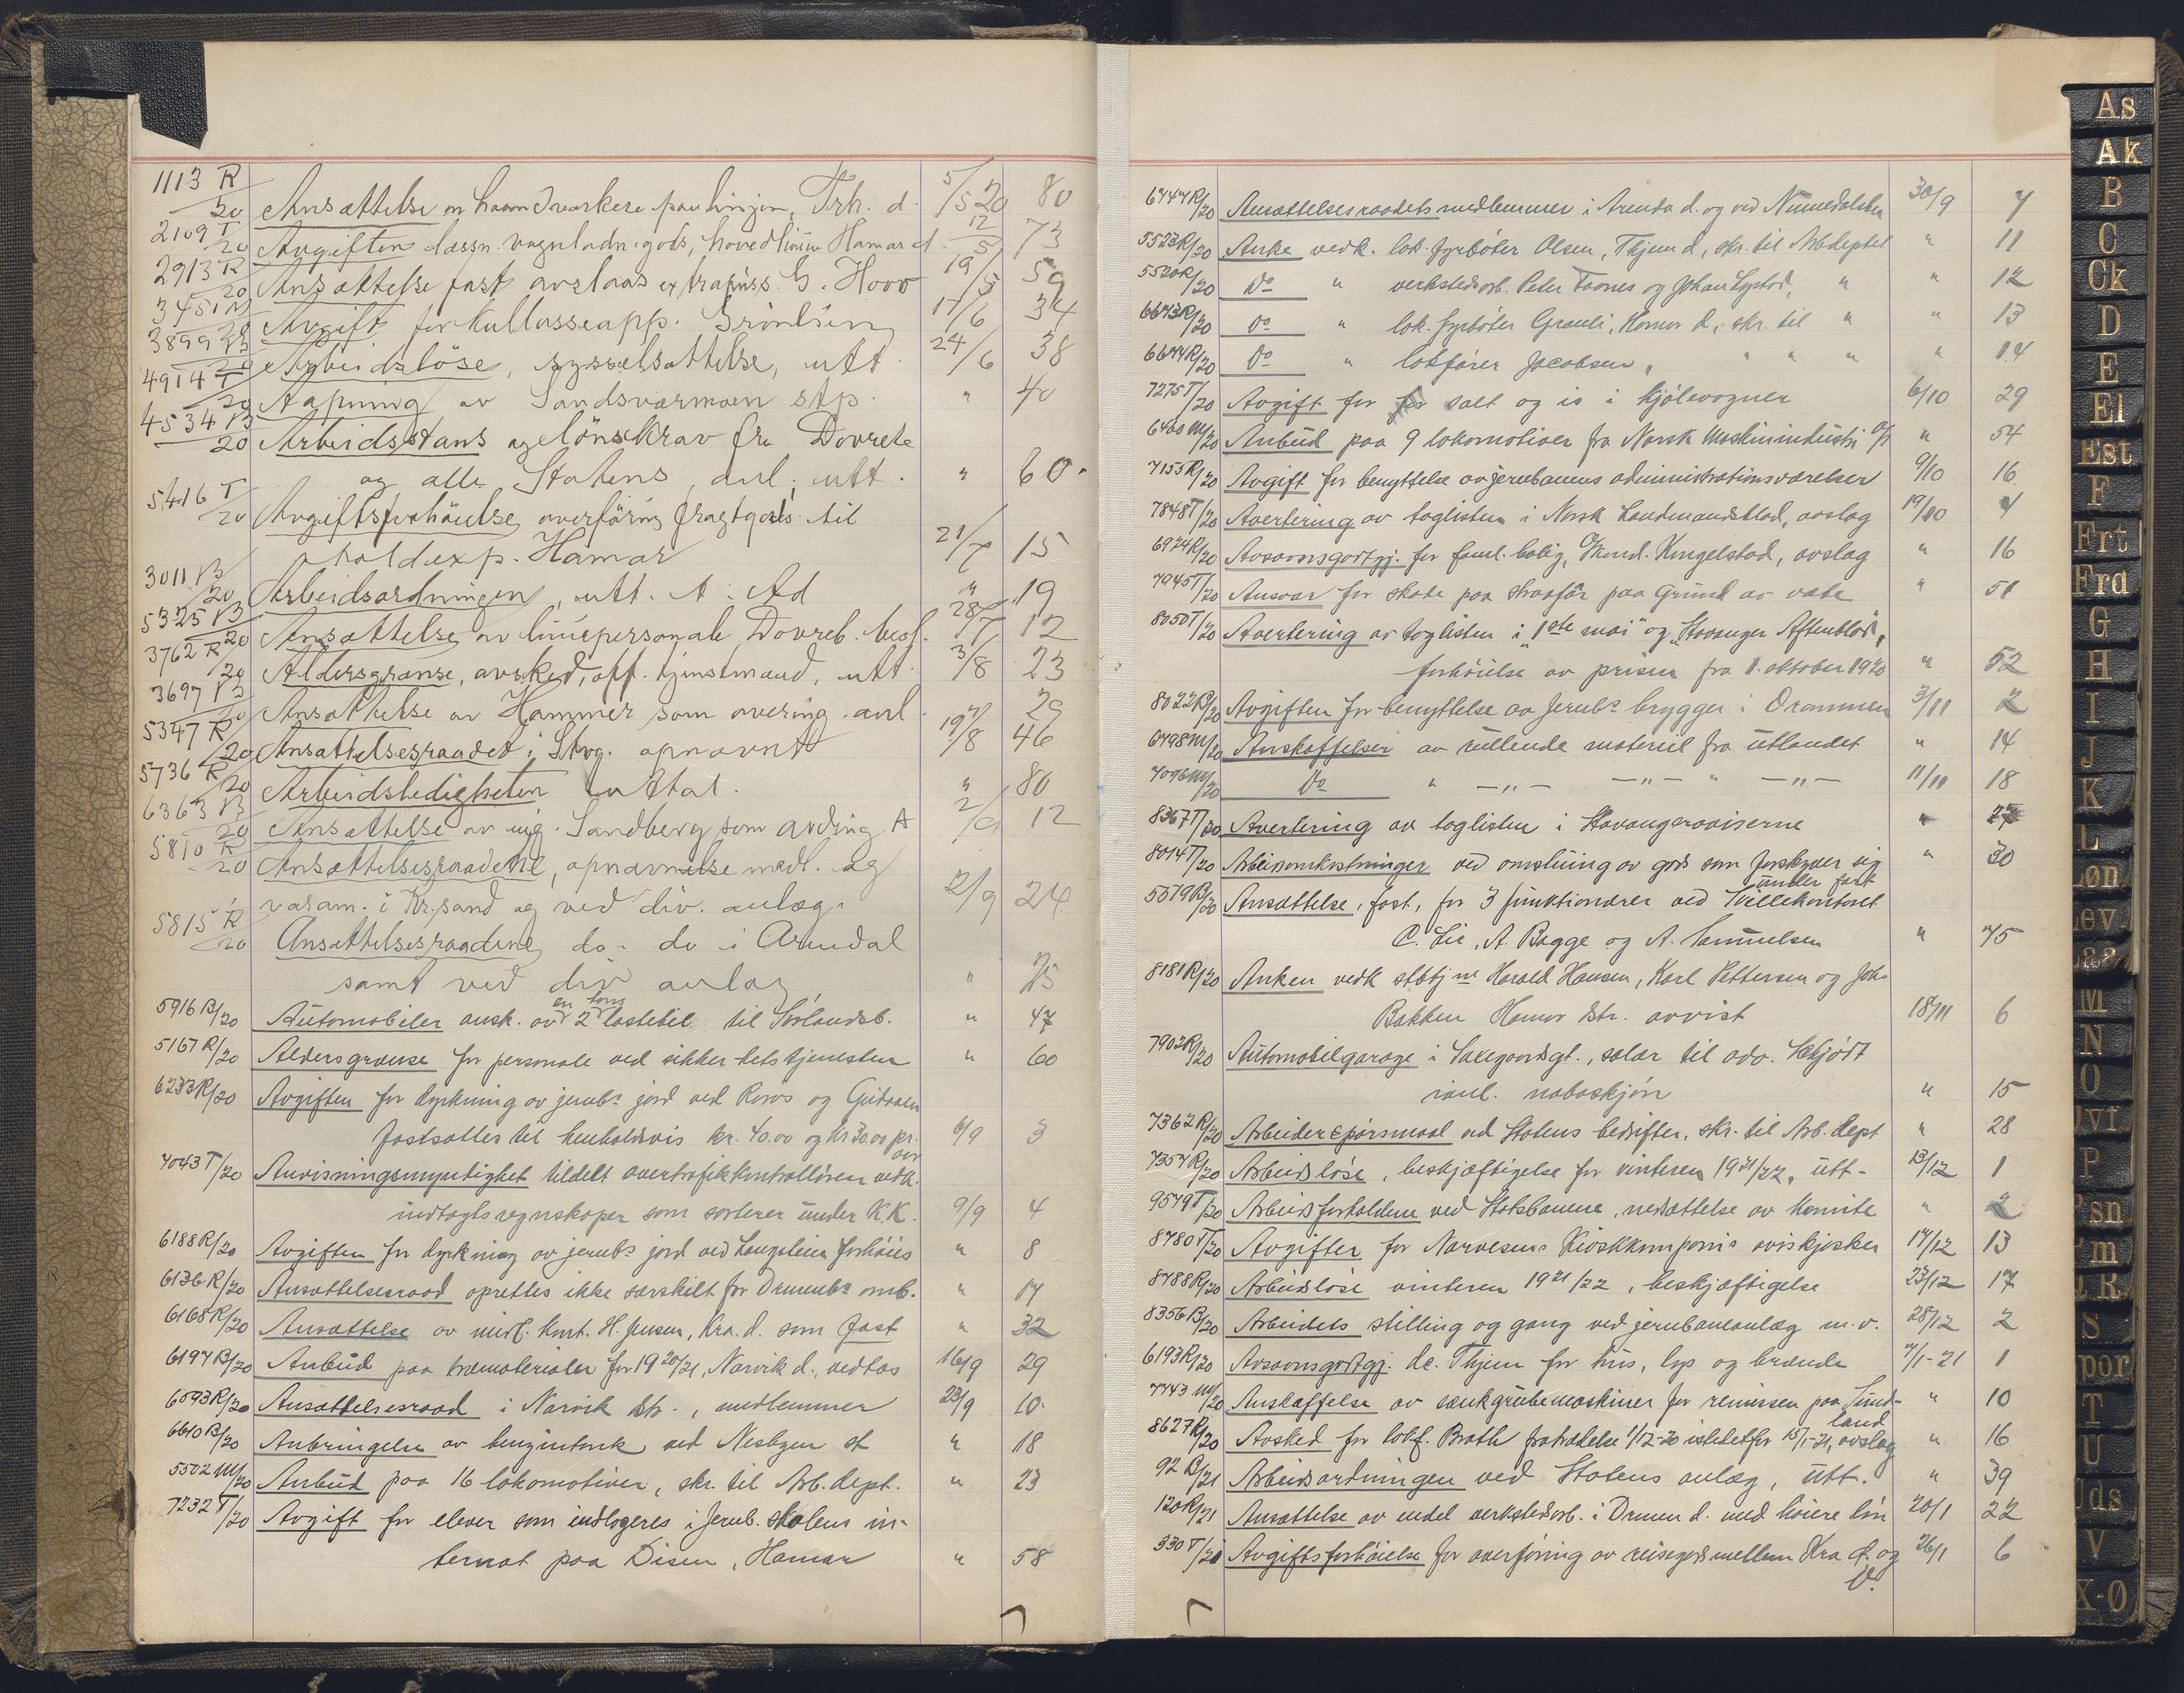 1113 R/20 Ansættelse en haandverkere paa linjen, Trh. d. 5/5 20 80
2109 T/20 Avgiften læssn. vognladn. gods, hovedlinien Hamar d. 12/5 73
2913 R/20 Ansættelse fast avslaas extrapuss. G. Hovo 19/5 59
3451 M/20 Avgift for kullosseapp. Grönlien 17/6 34
3899 B/20 Arbeidslöse, sysselsættelse, utt. 24/6 38
4914 T/20 Aapning av Sandsværmoen stp. " 40
4534 B/20 Arbeidsstans og lönskrav fra Dovreb.
og alle Statens anl. utt. " 60.
5416 T/20 Avgiftsforhöielse overföring fragtgods til
toldexp. Hamar 21/7 15
3011 B/20 Arbeidsordningen, utt. A. Ad " 19
5325 B/20 Ansættelse av liniepersonale Dovreb. besl. 28/7 12
3762 R/20 Aldersgrænse, avsked, off. tjenstmænd, utt. 3/8 23
3697 B/20 Ansættelse av Hammer som overing. anl. " 29
5347 R/20 Ansættelsesraadet i Stvg. opnævnt 19/8 46
5736 R/20 Arbeidsledigheten uttal. " 80
6363 B/20 Ansættelse av ing. Sandberg som avding A 2/9 12
5810 R/20 Ansættelsesraadene, opnævnelse medl. og
varam. i Kr.sand og ved div. anlæg. 2/9 24
5815 R/20 Ansættelsesraadene do. do i Arendal
samt ved div anlæg " 25
5916 B/20 Automobiler ansk. av en 2 tons lastebil til Sörlandsb. " 47
5167 R/20 Aldersgrænse for personale ved sikkerhetstjenesten " 60
6233 R/20 Avgiften for dyrkning av jernbs jord ved Röros og Gudåen
fastsattes til henholdsvis kr. 40.00 og kr 30.00 pr. 6/9 3
7043 T/20 Anvisningsmyndighet tildelt overtrafikkontrollören vedk.
indtægtsregnskaper som sorterer under KK. 9/9 4
6188 R/20 Avgiften for dyrkning av jernbs jord ved Langstein forhöies " 8
6136 R/20 Ansættelsesraad oprettes ikke særskilt for Drammenbs omb. " 14
6168 R/20 Ansættelse av midl. kont. H. Jensen, Kra. d. som fast " 32
6197 B/20 Anbud paa træmaterialer for 1920/21, Narvik d., vedtas 16/9 29
6093 R/20 Ansættelsesraad i Narvik str., medlemmer 23/9 10.
6610 B/20 Anbringelse av bengintank ved Nesbyen st " 18
5502 M/20 Anbud paa 16 lokomotiver, skr. til Arb. dept. " 23
7232 T/20 Avgift for elever som indlogeres i Jernb. skolens in-
ternat paa Disen, Hamar " 58
6744 R/20 Ansættelsesraadets medlemmer i Arendal d. og ved Numedalsbn 30/9 7
5523 R/20 Anke vedk. lok. fyrböter Olsen, Thjem d, skr. til Arbdeptet " 11
5520 R/20 Do " verkstedsarb. Peter Foones og Johan Lystad, " " 12
6643 R/20 Do " lok. fyrböter Grauli, Hamar d, skr. til " " 13
6644 R/20 Do " lokförer Jacobsen, " " " " 14
7275 T/20 Avgift for salt og is i kjölevogner 6/10 29
6400 M/20 Anbud paa 9 lokomotiver fra Norsk Maskinindustri A/S " 54
7155 R/20 Avgift for benyttelse av jernbanens administrationsværelser 9/10 16
7848 T/20 Avertering av toglisten i Norsk Landmandsblad, avslag 19/10 4
6924 R/20 Avsavnsgodtgj. for faml. bolig, Kingelstad, avslag " 16
7945 T/20 Ansvar for skade paa straaför paa grund av væte " 51
8050 T/20 Avertering av toglisten i "1ste mai" og "Stavanger Aftenblad",
forhöielse av prisen fra 1. oktober 1920 " 52
8022 B/20 Avgiften for benyttelse av Jernbs brygger i Drammen 3/11 2
6498 M/20 Anskaffelser av rullende materiel fra utlandet " 14
7096 M/20 Do " —"— " —"— 11/11 18
8367 T/20 Avertering av toglisten i Stavangeraviserne " 27
8014 T/20 Arbeisomkostninger ved omstuing av gods som forskyver sig " 30
under fart
5579 B/20 Ansættelse, fast, for 3 funktionærer ved Tvillekontoret
C. Lie, A. Bagge og A. Samuelsen " 45
8181 R/20 Anken vedk stbtj ne Harald Hansen, Karl Pettersen og Joh.
Bakken Hamar str. avvist 18/11 6
7902 R/20 Automobilgarage i Lakegaardsgt., salær til adv. Schjödt
innl. naboskjön " 15
7362 R/20 Arbeiderspörsmaal ved Statens bedrifter, skr. til Arb. dept " 28
7354 R/20 Arbeidslöse, beskjæftigelse for vinteren 1921/22, utt. 13/12 1
9579 T/20 Arbeidsforholdene ved Statsbanene, nedsættelse av komite " 2
8780 T/20 Avgifter for Narvesens Kioskkompanis aviskjosker 14/12 13
8788 R/20 Arbeidslöse vinteren 1921/22, beskjæftigelse 23/12 17
8356 B/20 Arbeidets stilling og gang ved jernbaneanlæg m.v. 28/12 2
6193 R/20 Avsavnsgodtgj. dc. Thjem for hus, lys og brænde 4/1-21 1
7743 M/20 Anskaffelse av sænkgrubemaskiner for remissen paa Sund-
land " 10
8627 R/20 Avsked for lokf. Brath fratrædelse 1/12-20 istedetfor 15/1-21, avslag " 16
92 B/21 Arbeidsordningen ved Statens anlæg, utt. " 39
120 R/21 Ansættelse av endel verkstedsarb. i Drmen d. med höiere lön 20/1 22
330 T/21 Avgiftsforhöielse for overföring av reisegods mellem Kra Ö. og 26/1 6
V.
As
Ak
B
C
Ck
D
E
El
Est
F
Frt
Frd
G
H
I
J
K
L
M
N
O
P
R
S
T
U
V
X-Ø